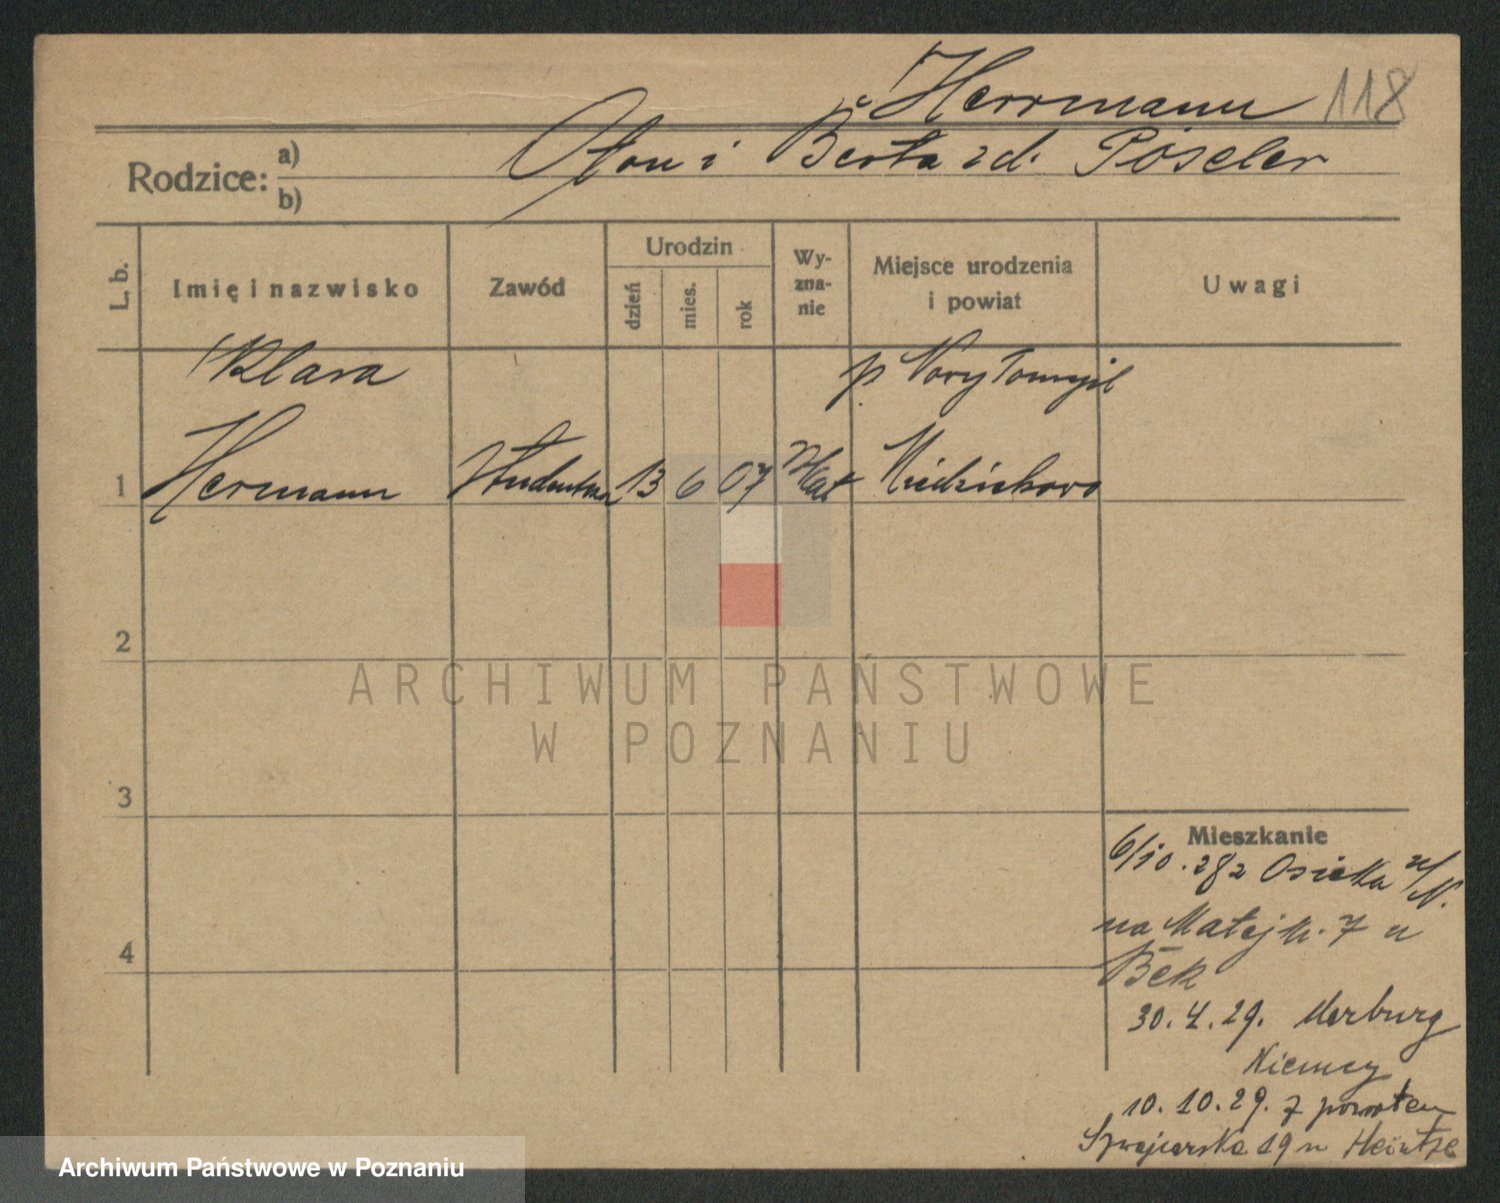 Herrmann 118
Rodzice: a) Oton i Berta zd. Pöseler
b)
L. b.
Imię i nazwisko
Zawód
Urodzin
dzień
mies.
rok
Wy-
zna-
nie
Miejsce urodzenia
i powiat
Uwagi
Klara p Nowy Tomyśl
1 Hermann studentka 13 6 07 Kat Miedzichowo
2
3
4
ARCHIWUM PAŃSTWOWE
W POZNANIU
Mieszkanie
6/10.28 z Osieka n/N.
na Matejk. 7 u
Bek
30.4.29. Marburg
Niemcy
10.10.29. z powrotem
Szwajcarska 19 u Heintze
Archiwum Państwowe w Poznaniu